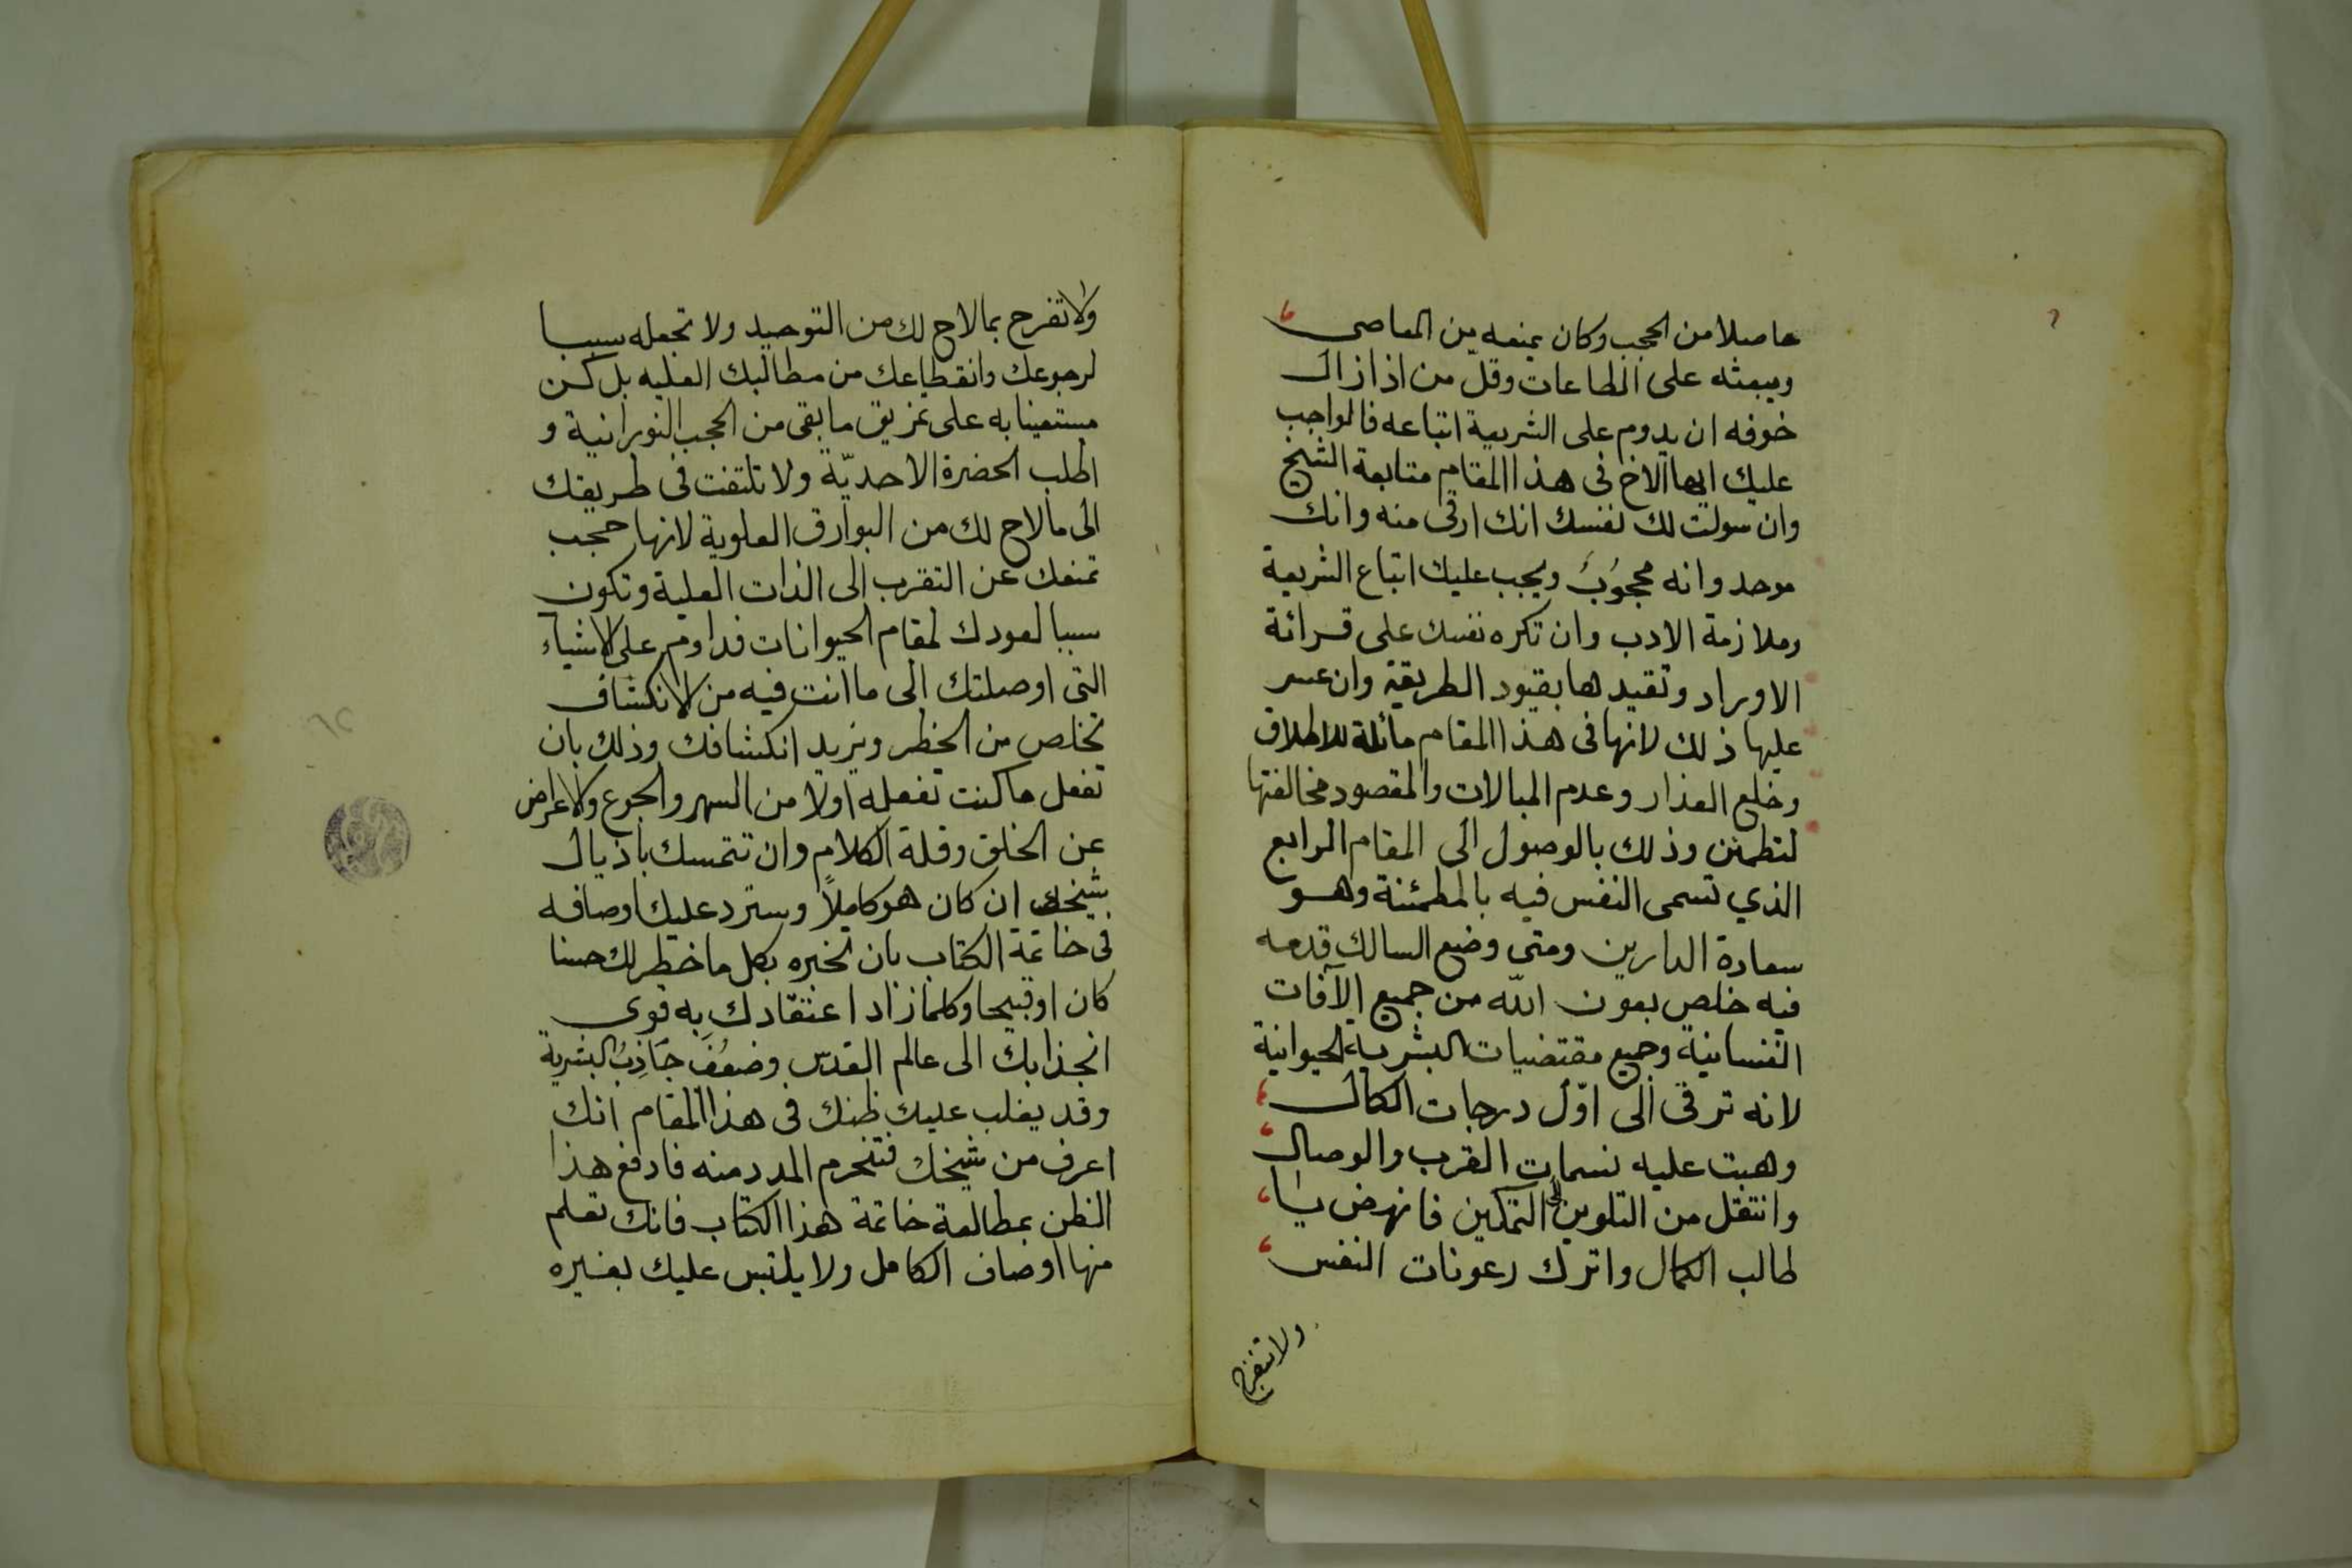 حاصلا من الحجب وكان يمنعه من المعاصى
ويبعثه على الطاعات وقلّ من اذا زال
خوفه ان يدوم على الشريعة اتباعه فالواجب
عليك ايها الاخ فى هذا المقام متابعة الشيخ
وان سولت لك نفسك انك ارقى منه وانك
موحد وانه محجوب ويجب عليك اتباع الشريعة
وملازمة الادب وان تكره نفسك على قرائة
الاوراد وتقيدها بقيود الطريقة وان عسر
عليها ذلك لانها فى هذا المقام مائلة للاطلاق
وخلع العذار وعدم المبالات والمقصود مخالفتها
لتطمئن وذلك بالوصول الى المقام الرابع
الذي تسمى النفس فيه بالمطمئنة وهو
سعادة الدارين ومتى وضع السالك قدمه
فيه خلص بعون الله من جميع الآفات
النفسانية وجميع مقتضيات البشرية الحيوانية
لانه ترقى الى اوّل درجات الكمال
وهبت عليه نسمات القرب والوصال
وانتقل من التلوين الى التمكين فانهض يا
طالب الكمال واترك رعونات النفس
ولا تفرح
ولا تفرح بما لاح لك من التوحيد ولا تجعله سببا
لرجوعك وانقطاعك من مطالبك العليه بل كن
مستعينا به على تمزيق ما بقى من الحجب النورانية و
اطلب الحضرة الاحديّة ولا تلتفت فى طريقك
الى ما لاح لك من البوارق العلوية لانها حجب
تمنعك عن التقرب الى الذات العلية وتكون
سببا لعودك لمقام الحيوانات فداوم على الاشياء
التى اوصلتك الى ما انت فيه من الانكشاف
تخلص من الخطر ويزيد انكشافك وذلك بان
تفعل ما كنت تفعله اولا من السهر والجوع والاعراض
عن الخلق وقلة الكلام وان تتمسك باذيال
شيخك ان كان هو كاملاً وسترد عليك اوصافه
فى خاتمة الكتاب بان تخبره بكل ما خطر لك حسنا
كان او قبيحا وكلما زاد اعتقادك به قوى
انجذابك الى عالم القدس وضعف جاذب البشرية
وقد يغلب عليك ظنك فى هذا المقام انك
اعرف من شيخك فتحرم المدد منه فادفع هذا
الظن بمطالعة خاتمة هذا الكتاب فانك تعلم
منها اوصاف الكامل ولا يلتبس عليك بغيره